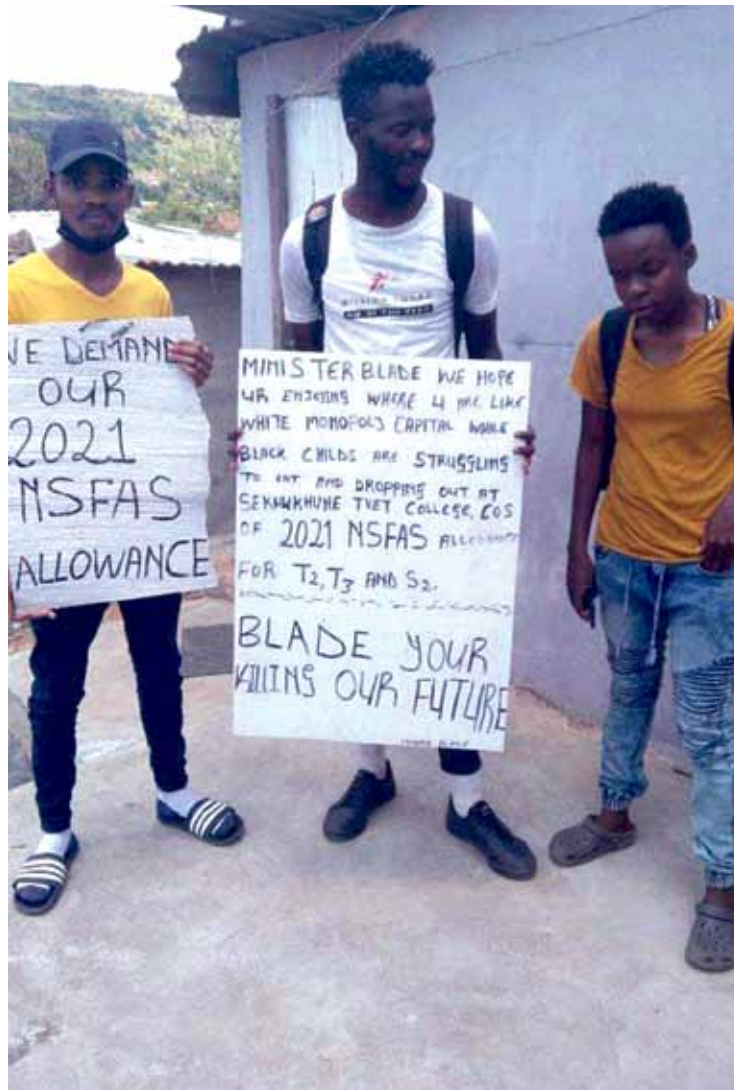 WE DEMAND
OUR
2021
NSFAS
ALLOWANCE
MINISTER BLADE WE HOPE
UR ENJOYING WHERE U ARE LIKE
WHITE MONOPOLY CAPITAL WHILE
BLACK CHILDS ARE STRUGGLING
TO EAT AND DROPPING OUT AT
SEKHUKHUNE TVET COLLEGE, COS
OF 2021 NSFAS ALLOWANCE
FOR T2, T3 AND S2.
BLADE YOUR
KILLING OUR FUTURE